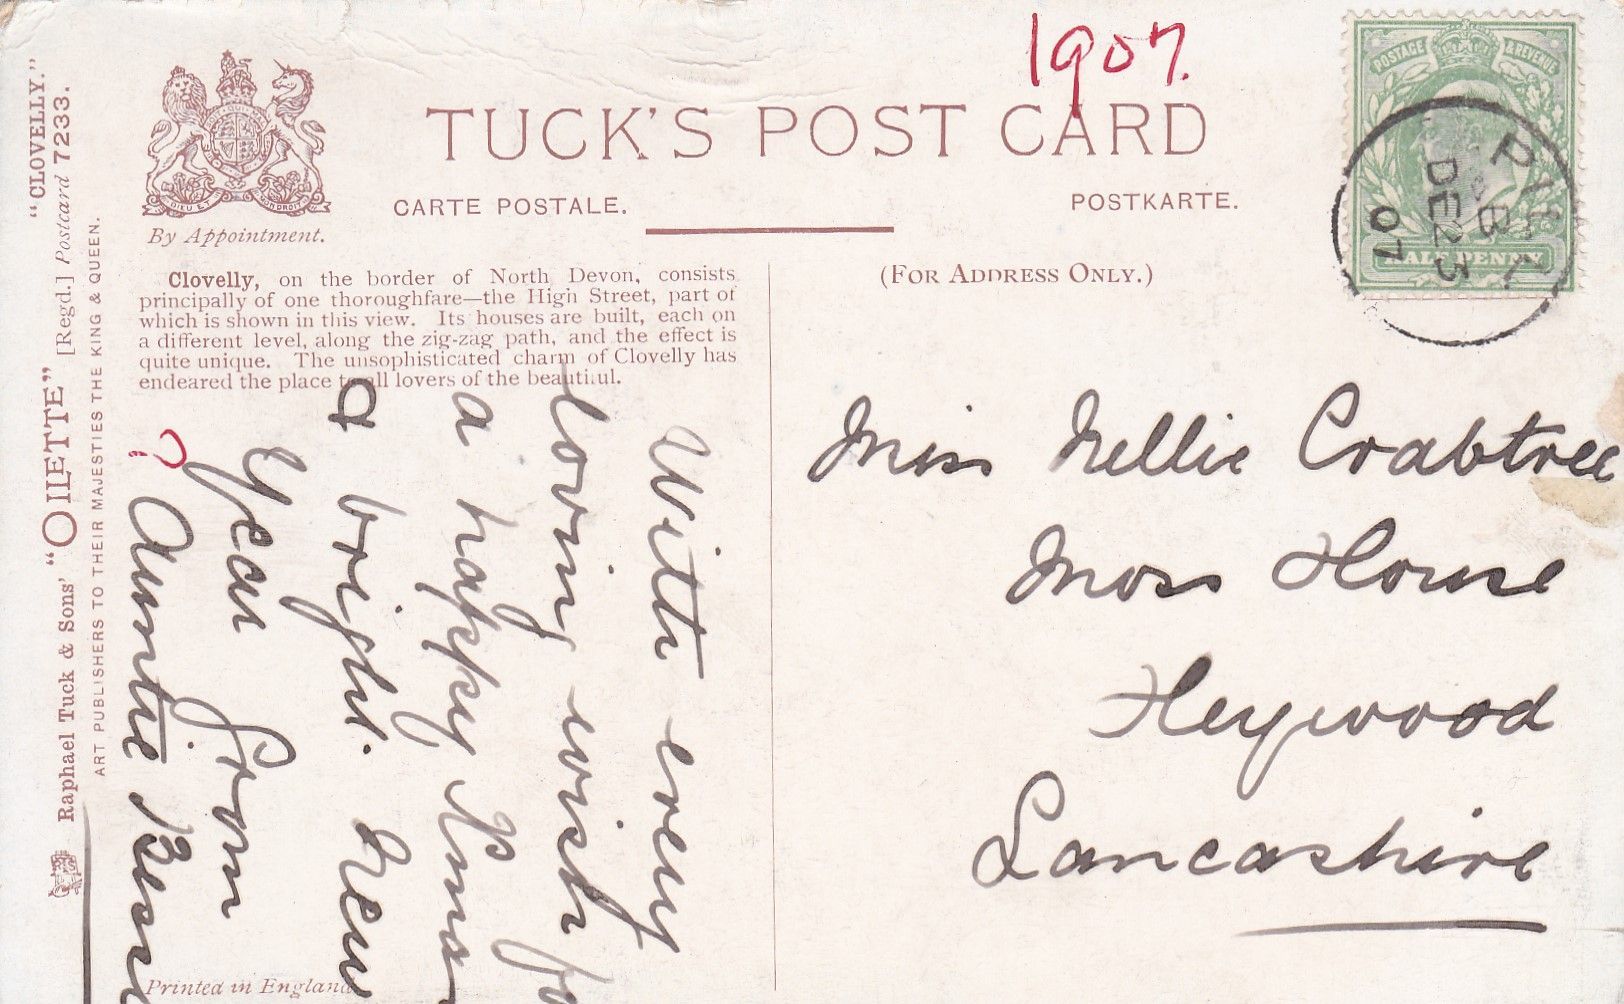 1907.
TUCK'S POST CARD
CARTE POSTALE.
POSTKARTE.
DIEU ET MON DROIT
By Appointment.
(FOR ADDRESS ONLY.)
POSTAGE & REVENUE
HALF PENNY
PILL
DE 23
07
"CLOVELLY."
Raphael Tuck & Sons' "OILETTE" [Regd.] Postcard 7233.
ART PUBLISHERS TO THEIR MAJESTIES THE KING & QUEEN.
Clovelly, on the border of North Devon, consists
principally of one thoroughfare—the High Street, part of
which is shown in this view. Its houses are built, each on
a different level, along the zig-zag path, and the effect is
quite unique. The unsophisticated charm of Clovelly has
endeared the place to all lovers of the beautiful.
With every
loving wish fo
a happy Xmas
& bright. New
Year from
? Auntie Bessi
Miss Nellie Crabtree
Moss House
Heywood
Lancashire
Printed in England